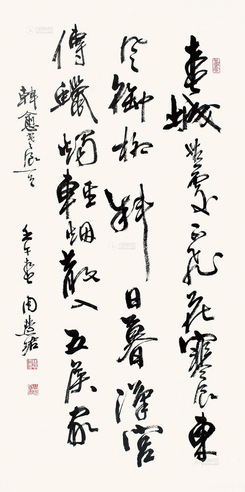 春城無處不飛花寒食東
風御柳斜日暮漢宮
傳蠟燭輕烟散入五侯家
韓愈詩一首
壬午春周